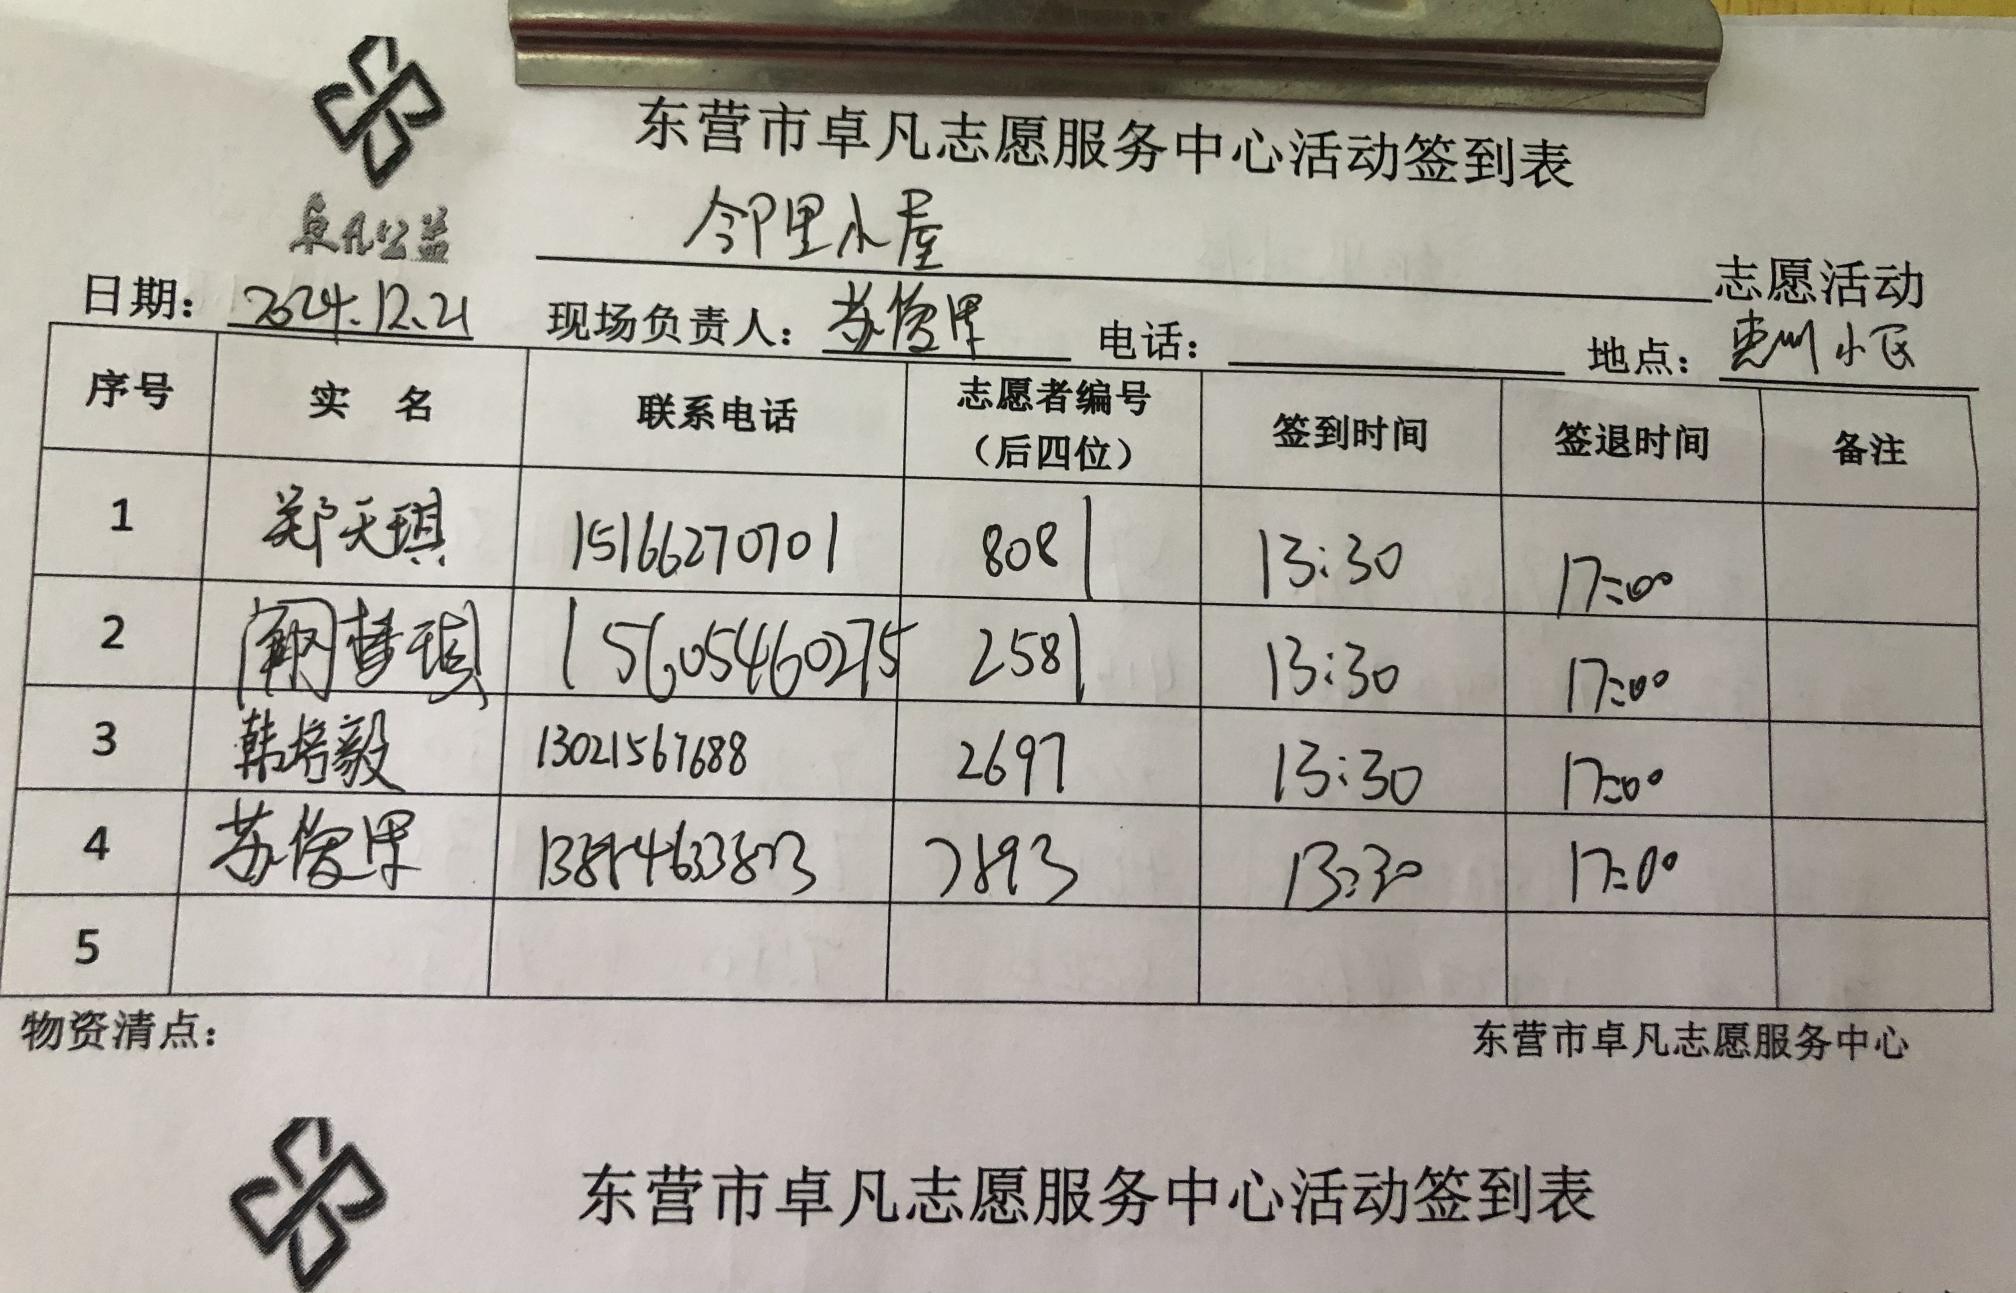 东营市卓凡志愿服务中心活动签到表
卓凡公益
邻里小屋 志愿活动
日期：2024.12.21 现场负责人：苏俊果 电话： 地点：惠州小区
序号 实名 联系电话 志愿者编号（后四位） 签到时间 签退时间 备注
1 郑天琪 15166270701 8081 13:30 17:00
2 梦琪 15605460275 2581 13:30 17:00
3 韩培毅 13021567688 2697 13:30 17:00
4 苏俊果 7893 13:30 17:00
5
物资清点： 东营市卓凡志愿服务中心
东营市卓凡志愿服务中心活动签到表